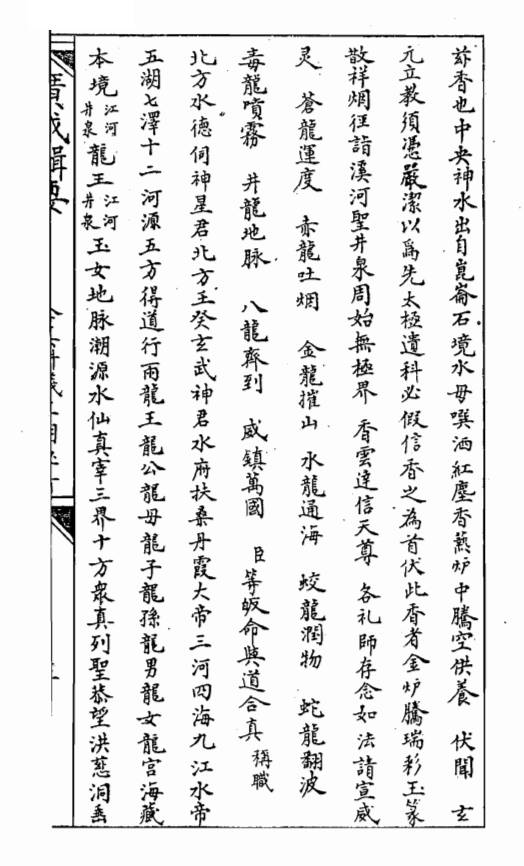 玅香也中央神水出自崑崙石境水母噀洒紅塵香爇炉中騰空供養　伏聞　玄
元立教須憑嚴潔以為先太極遺科必假信香之為首伏此香者金炉騰瑞彩玉篆
散祥烟徑詣溪河聖井泉周始無極界　香雲達信天尊　各礼師存念如法請宣威
灵　蒼龍運度　赤龍吐烟　金龍摧山　水龍通海　蛟龍潤物　蛇龍翻波
毒龍噴霧　井龍地脉　八龍齊到　威鎮萬國　臣等皈命與道合真　稱職
北方水德伺神星君北方壬癸玄武神君水府扶桑丹霞大帝三河四海九江水帝
五湖七澤十二河源五方得道行雨龍王龍公龍母龍子龍孫龍男龍女龍宮海藏
本境江河井泉龍王江河井泉玉女地脉潮源水仙真宰三界十方衆真列聖恭望洪慈洞垂
廣成輯要